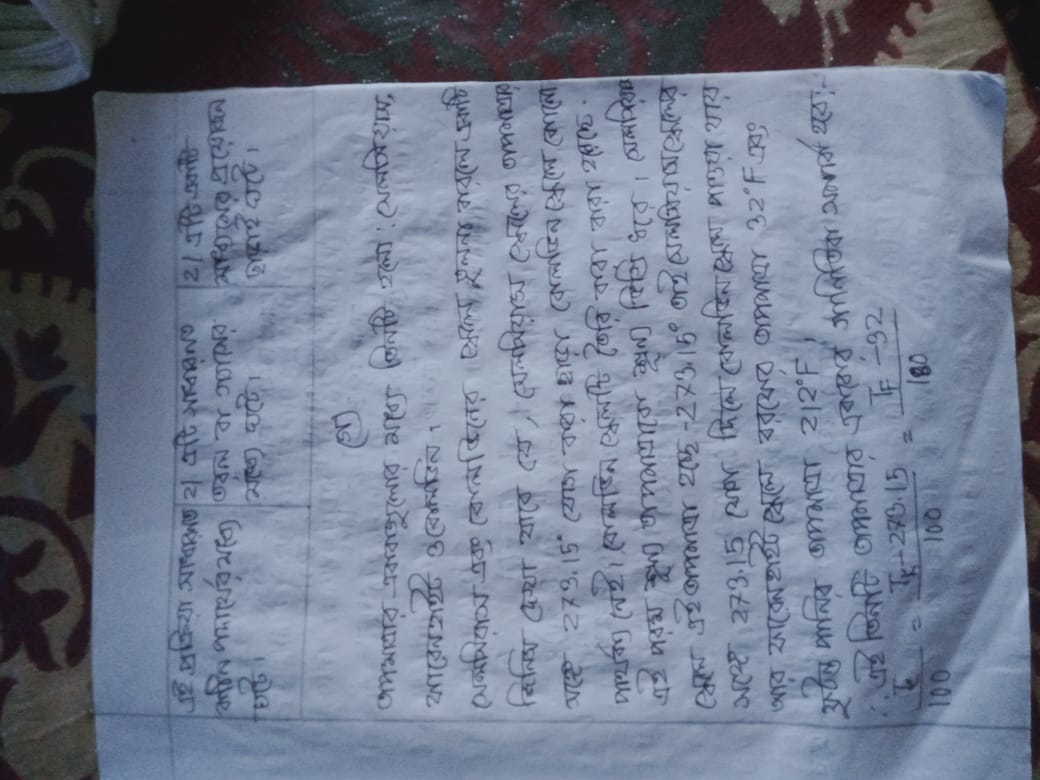 এই প্রক্রিয়া সাধারনত
কঠিন পদার্থের মধ্যে
ঘটে।
২। এটি সাধারনত
তরল বা গ্যাসের
মধ্যে ঘটে।
২। এটি একটি
মাধ্যমের প্রয়োজন
ছাড়াই ঘটে।
(গ)
তাপমাত্রার এককগুলোর মধ্যে তিনটি হলো: সেলসিয়াস,
ফারেনহাইট ও কেলভিন।
সেলসিয়াস এবং কেলভিনের স্কেলে তুলনা করলে একটি
জিনিস দেখা যাবে যে, সেলসিয়াস স্কেলের তাপমাত্রার
সঙ্গে 273.15° যোগ করা ছাড়া কেলভিন স্কেলে কোনো
পার্থক্য নেই। কেলভিন স্কেলটি তৈরি করা করা হয়েছে
এই পরম শূন্য তাপমাত্রাকে শূন্য ডিগ্রি ধরে। সেলসিয়াস
স্কেলে এই তাপমাত্রা হচ্ছে -273.15° তাই সেলসিয়াস স্কেলের
সঙ্গে 273.15 যোগ দিলে কেলভিন স্কেল পাওয়া যায়
আর ফারেনহাইট স্কেলে বরফের তাপমাত্রা 32°F এবং
ফুটন্ত পানির তাপমাত্রা 212°F।
∴ এই তিনটি তাপমাত্রার এককের গানিতিক সম্পর্ক হবে:-
Tc/100 = TK-273.15/100 = TF-32/180